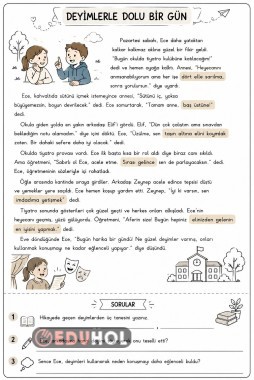 DEYİMLERLE DOLU BİR GÜN
Pazartesi sabahı, Ece daha yataktan
kalkar kalkmaz aklına güzel bir fikir geldi.
"Bugün okulda tiyatro kulübüne katılacağım!"
dedi ve hemen ayağa kalktı. Annesi, "Heyecanını
anlayabiliyorum ama her işe dört elle sarılma,
sonra yorulursun." diye uyardı.
Ece, kahvaltıda sütünü içmek istemeyince annesi, "Sütünü iç, yoksa
büyüyemezsin, boyun devrilecek." dedi. Ece somurtarak, "Tamam anne, baş üstüne!"
dedi.
Okula giden yolda en yakın arkadaşı Elif'i gördü. Elif, "Dün çok çalıştım ama sınavdan
beklediğim notu alamadım." diye içini döktü. Ece, "Üzülme, sen taşın altına elini koydun
zaten. Bir dahaki sefere daha iyi olacak." dedi.
Okulda tiyatro provası vardı. Ece ilk başta kısa bir rol aldı diye biraz canı sıkıldı.
Ama öğretmeni, "Sabırlı ol Ece, acele etme. Sırası gelince sen de parlayacaksın." dedi.
Ece, öğretmeninin sözleriyle içi rahatladı.
Öğle arasında kantinde sıraya girdiler. Arkadaşı Zeynep acele edince tepsisi düştü
ve yemekler yere saçıldı. Ece hemen koşup yardım etti. Zeynep, "İyi ki varsın, sen
imdadıma yetişmek" dedi.
Tiyatro sonunda gösterileri çok güzel geçti ve herkes onları alkışladı. Ece'nin
heyecanı geçmiş, yüzü gülüyordu. Öğretmeni, "Aferin size! Bugün hepiniz elinizden gelenin
en iyisini yapmak." dedi.
Eve döndüğünde Ece, "Bugün harika bir gündü! Ne güzel deyimler varmış, onları
kullanmak konuşmayı ne kadar eğlenceli yapıyor." diye düşündü.
SORULAR
1 Hikayede geçen deyimlerden üç tanesini yazınız.
EDUHOL
2 onu teselli etti?
3 Sence Ece, deyimleri kullanarak neden konuşmayı daha eğlenceli buldu?